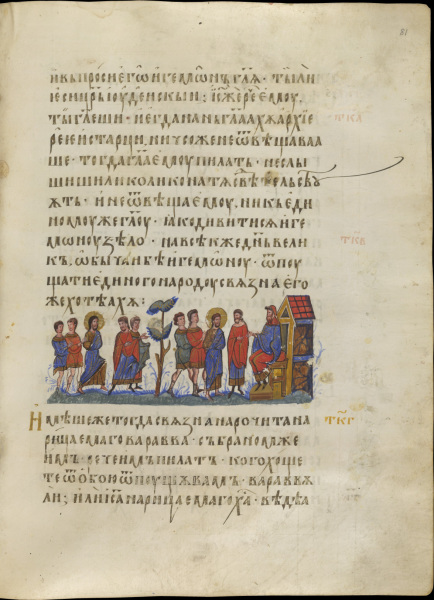 81
и въпроси его игемѡнъ глѧ · ты ли
еси цр҃ь іоудеискыи ; іс҃ же рече емоу,
ты глеши · и егда на нь глаахѫ архїе
тка
рее и старци, ничсоже не ѿвѣщаваа
ше · тогда гла емоу пилатъ · не слы
шиши ли колико на тѧ свѣдѣтельствоу
ѫтъ · и не ѿвѣща емоу, ни къ еди
номоу же глоу · ꙗко дивитисѧ иге
мѡноу ѕѣло · на всѣкъ же днь вели
ткв
къ, ѡбычаи бѣ игемѡноу · ѿпоу
щати единого народоу свѧзнѣ его
же хотѣахѫ :
Имѣше же тогда свѧзна нарочита на
ткг
рицаемаго варавва · събраномже
имъ · рече имъ пилатъ · кого хоще
те ѿ обою ѿпоущѫ вамъ · вараввѫ
ли ; или іс҃а нарицаемаго ха҃ · вѣдѣа